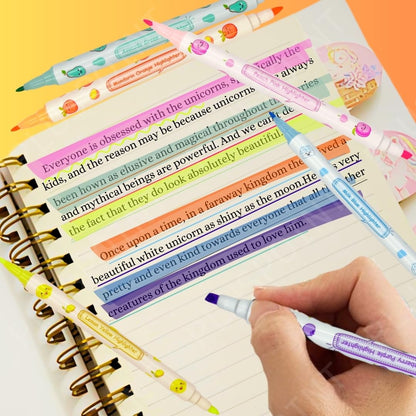 Mandarin Orange Highlighter
Everyone is obsessed with the unicorns, the
kids, and the reason may be because unicorns always
been hown as elusive and magical throughout the
and mythical beings are powerful. And we can
the fact that they do look absolutely beautiful.
Once upon a time, in a faraway kingdom the a
beautiful white unicorn as shiny as the moon.He very
pretty and even kind towards everyone that all
creatures of the kingdom used to love him.
Highlighter
Highlighter
Lemon Yellow Highlighter
Purple Highlighter